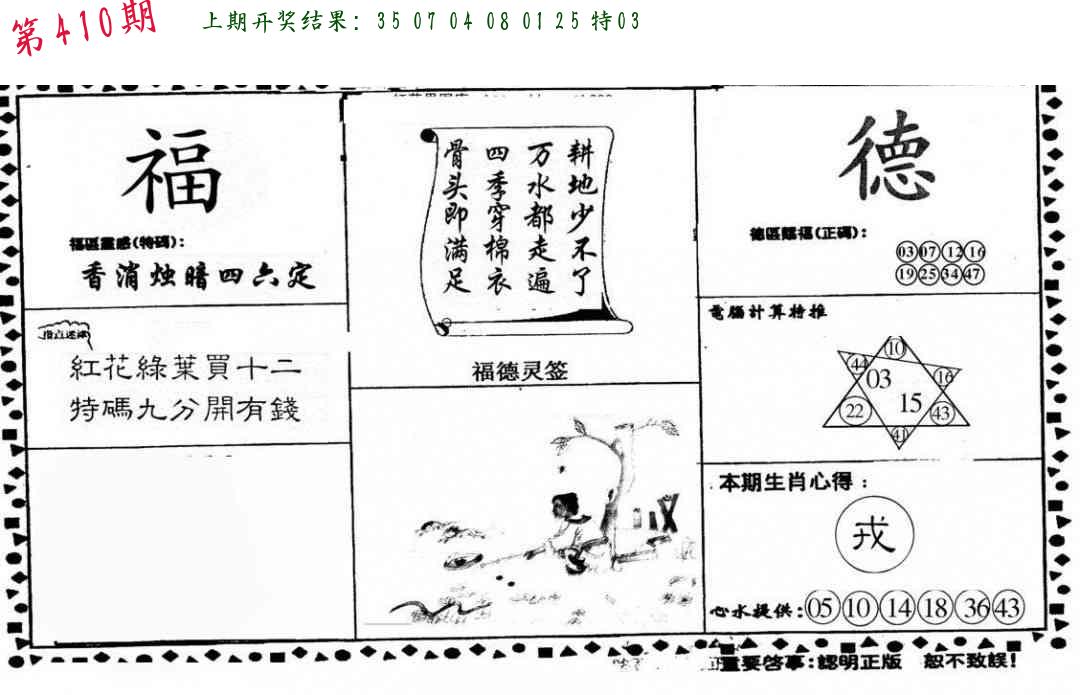 第410期
上期开奖结果：35 07 04 08 01 25 特03
福
福區靈感(特碼)：
香消烛暗四六定
指点迷津
紅花綠葉買十二
特碼九分開有錢
耕地少不了
万水都走遍
四季穿棉衣
骨头即满足
福德灵签
德
德區賜福(正碼)：
03 07 12 16
19 25 34 47
電腦計算特推
10
44 03 16
22 15 43
41
本期生肖心得：
戎
心水提供：05 10 14 18 36 43
重要啓事：認明正版 恕不致誤！